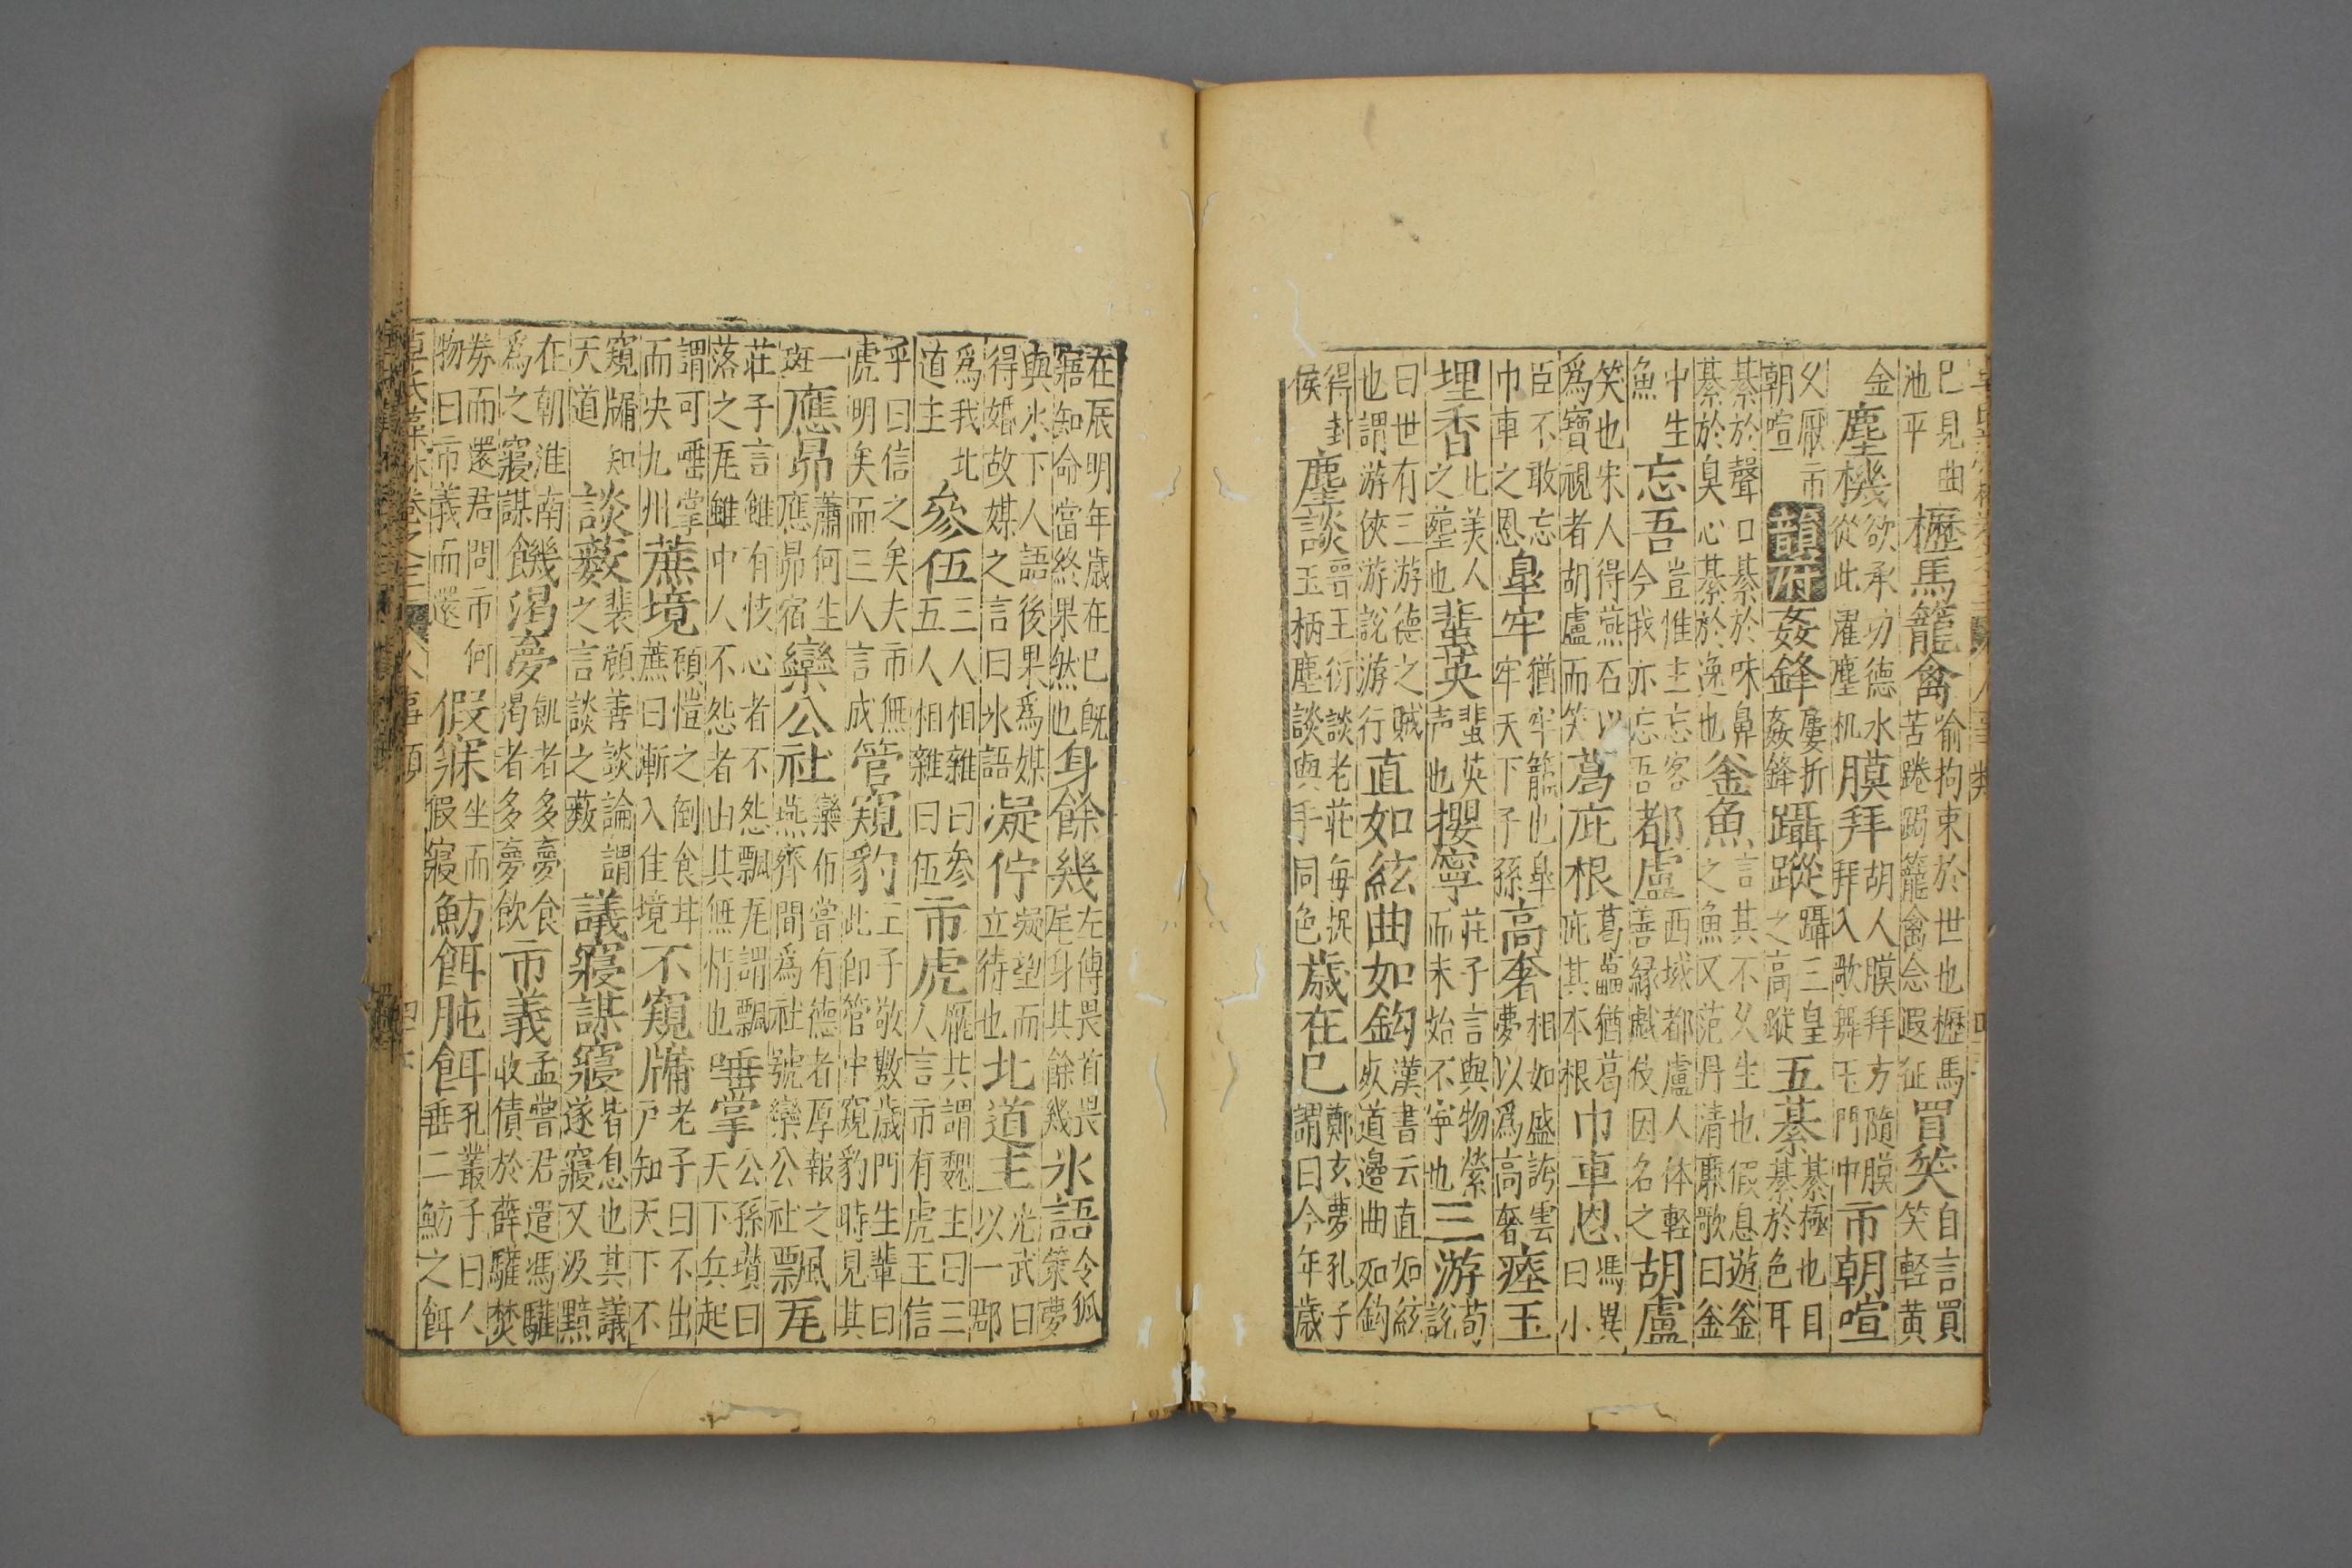 巳見曲池平櫪馬籠禽喻拘束於世也櫪馬苦踡跼籠禽念遐征買笑自言買笑輕黄
金塵機欲承功德水從此濯塵机膜拜胡人膜拜方隨膜拜入歌舞玉門中市朝喧
乆厭市朝喧韻府姦鋒屢折姦鋒躡蹤躡三皇之高蹤五綦綦極也目綦於色耳
綦於聲口綦於味鼻綦於臭心綦於逸也釜魚言其不乆生也假息遊釜之魚又范丹清厭歌曰釜
中生魚忘吾豈惟主忘客今我亦忘吾都盧西域都盧人体軽善緣戲伎因名之胡盧
笑也宋人得燕石以爲寶視者胡盧而笑葛庇根葛藟猶葛庇其本根巾車恩馮異曰小
臣不敢忘巾車之恩皐牢猶牢籠也皐牢天下子孫高奢相如盛誇雲夢以爲高奢瘗玉
埋香此美人之塟也蜚英蜚英声也攖寧莊子言與物縈而未始不寧也三游荀說
曰世有三游德之賊也謂游俠游說游行直如絃曲如鈎漢書云直如絃死道邊曲如鈎
得封侯塵談晋王衍談老莊每捉玉柄塵談與手同色歲在巳鄭玄夢孔子謂曰今年歲
在辰明年歲在巳旣寤知命當終果然也身餘幾左傳畏首畏尾身其餘幾氷語令狐策夢
與氷下人語後果爲媒得婚故媒之言曰氷語凝佇凝望而立待也北道主光武曰以一郡
爲我北道主參伍三人相雜曰參五人相雜曰伍市虎龐共謂魏主曰三人言市有虎王信
乎曰信之矣夫市無虎明矣而三人言成管窺豹王子敬數歲門生輩曰此郎管中窺豹時見其
一斑應昴蕭何生應昴宿欒公社欒布嘗有德者厚報之燕齊間爲社號欒公社票風瓦
莊子言雖有忮心者不怨飄瓦謂飄落之瓦雖中人不怨者由其無情也唾掌公孫瓉曰天下兵起
謂可唾掌而决九州蔗境顧愷之倒食甘蔗曰漸入佳境不窺牖老子曰不出户知天下不
窺牖知天道談藪裴頠善談論謂之言談之藪議寢謀寢皆息也其議遂寢又汲黯
在朝淮南爲之寢謀饑渴夢飢者多夢食渴者多夢飲市義孟嘗君遣馮驩收債於薛驩焚
券而還君問市何物曰市義而還假寐坐而假寢魴餌肫餌孔叢子曰人垂二魴之餌